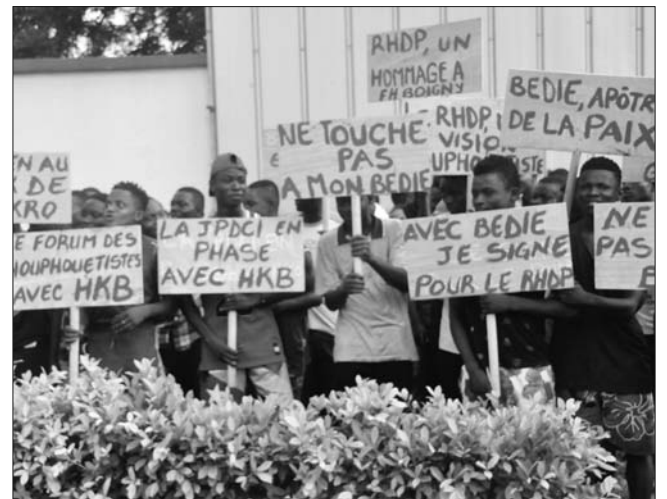 RHDP, UN
HOMMAGE A
F.H BOIGNY
BEDIE, APÔTR
DE LA PAIX
NE TOUCHE
PAS
A MON BEDIE
RHDP,
VISION
UPHOUETISTE
EN AU
DE
KRO
E FORUM DES
HOUPHOUETISTES
AVEC HKB
LA JPDCI EN
PHASE
AVEC HKB
AVEC BEDIE
JE SIGNE
POUR LE RHDP
NE
PAS